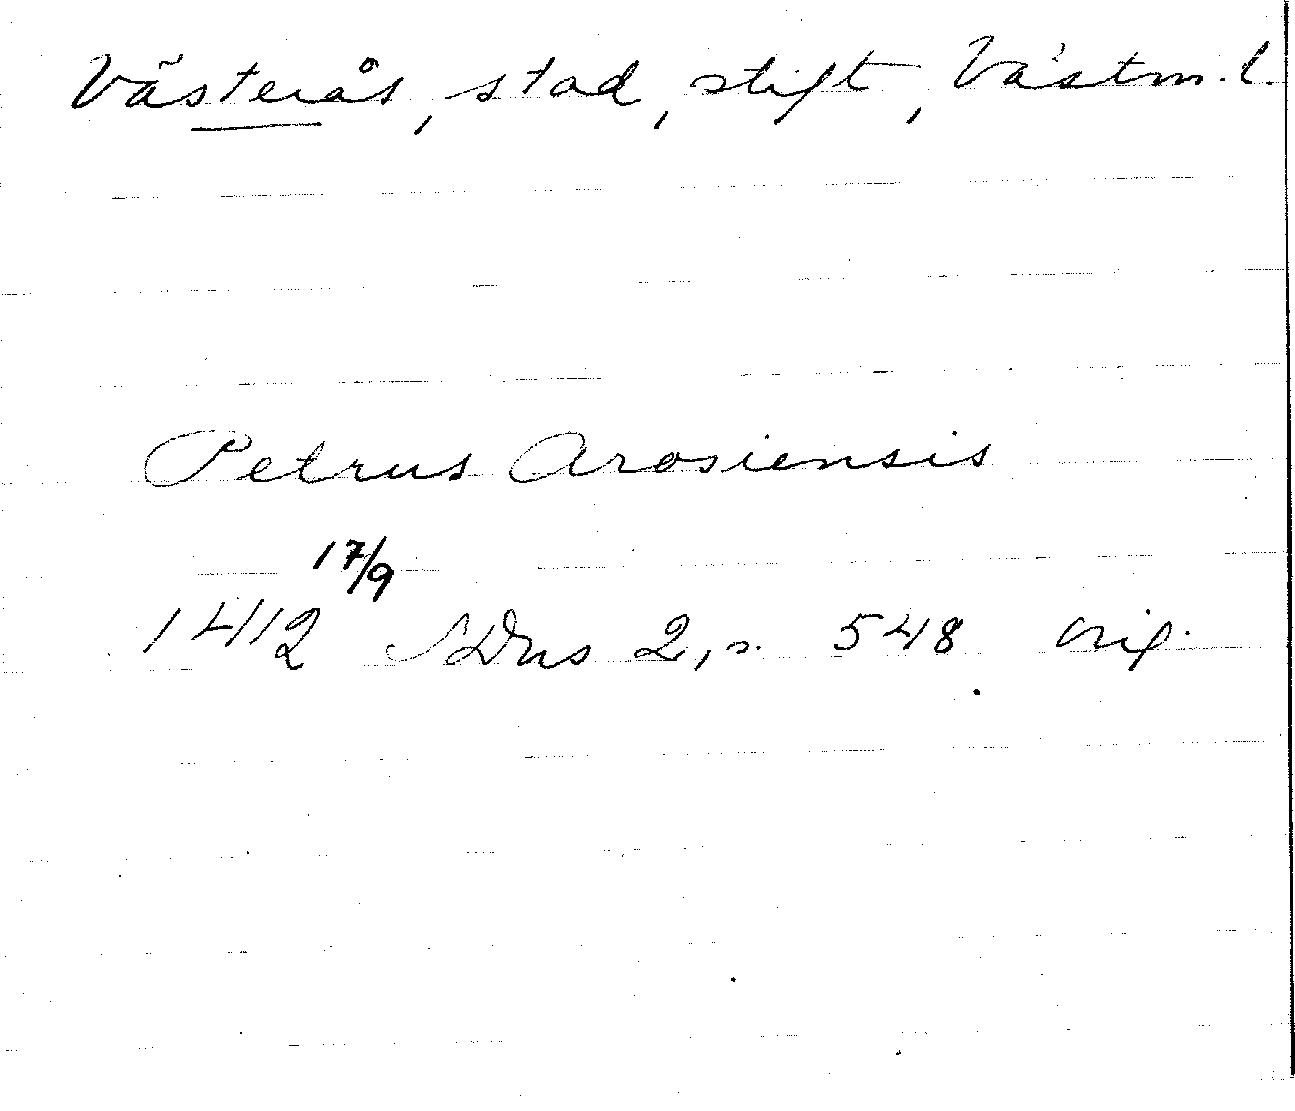 Västerås, stad, stift, Västm. l.
Petrus Arosiensis
17/9
1412 SDns 2, s. 548 orig.